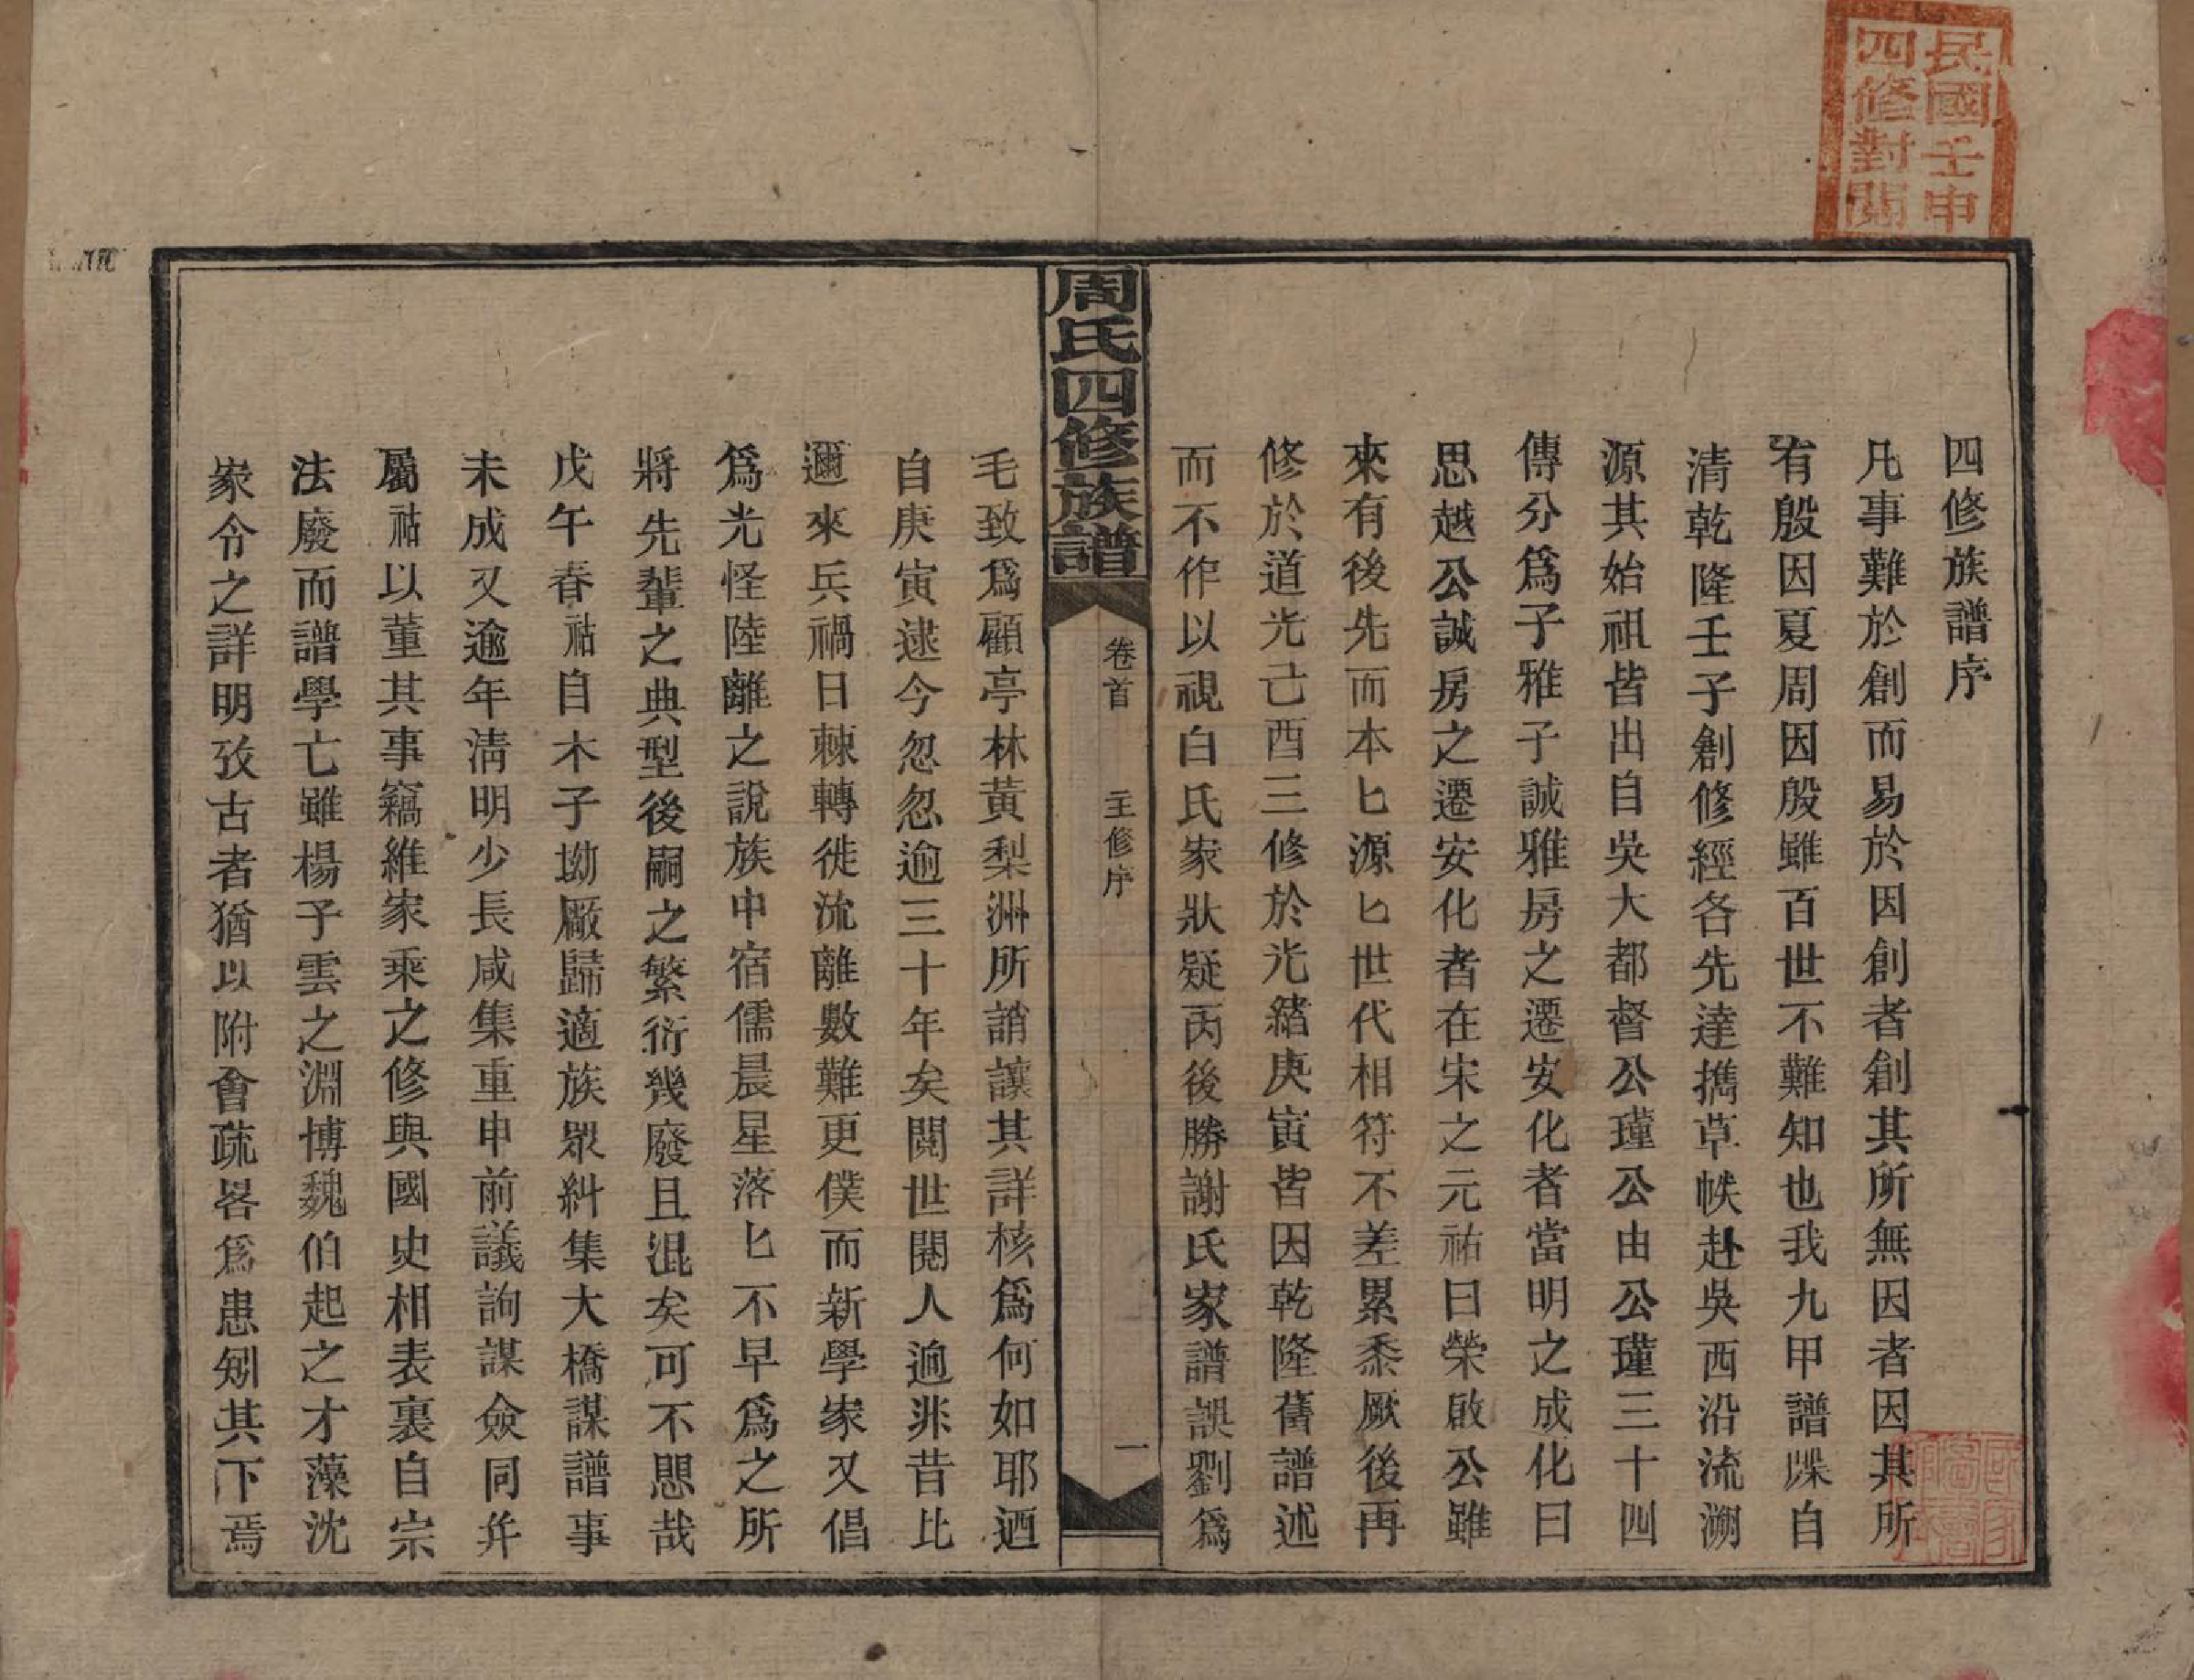 民國壬申
四修對閱
四修族譜序
凡事難於創而易於因創者創其所無因者因其所
有殷因夏周因殷雖百世不難知也我九甲譜牒自
清乾隆壬子創修經各先達擕草帙赴吳西沿流溯
源其始祖皆出自吳大都督公瑾公由公瑾三十四
傳分爲子雅子誠雅房之遷安化者當明之成化曰
思越公誠房之遷安化者在宋之元祐曰榮啟公雖
來有後先而本匕源匕世代相符不差累黍厥後再
修於道光己酉三修於光緒庚寅皆因乾隆舊譜述
而不作以視白氏家狀疑丙後勝謝氏家譜誤劉爲
周氏四修族譜
卷首
主修序
一
毛致爲顧亭林黃梨洲所誚讓其詳核爲何如耶迺
自庚寅逮今忽忽逾三十年矣閱世閱人逈非昔比
邇來兵禍日棘轉徙流離數難更僕而新學家又倡
爲光怪陸離之說族中宿儒晨星落匕不早爲之所
將先輩之典型後嗣之繁衍幾廢且混矣可不思哉
戊午春祜自木子坳廠歸適族眾糾集大橋謀譜事
未成又逾年淸明少長咸集重申前議詢謀僉同幷
屬祜以董其事竊維家乘之修與國史相表裏自宗
法廢而譜學亡雖楊子雲之淵博魏伯起之才藻沈
家令之詳明攷古者猶以附會疏畧爲患矧其下焉